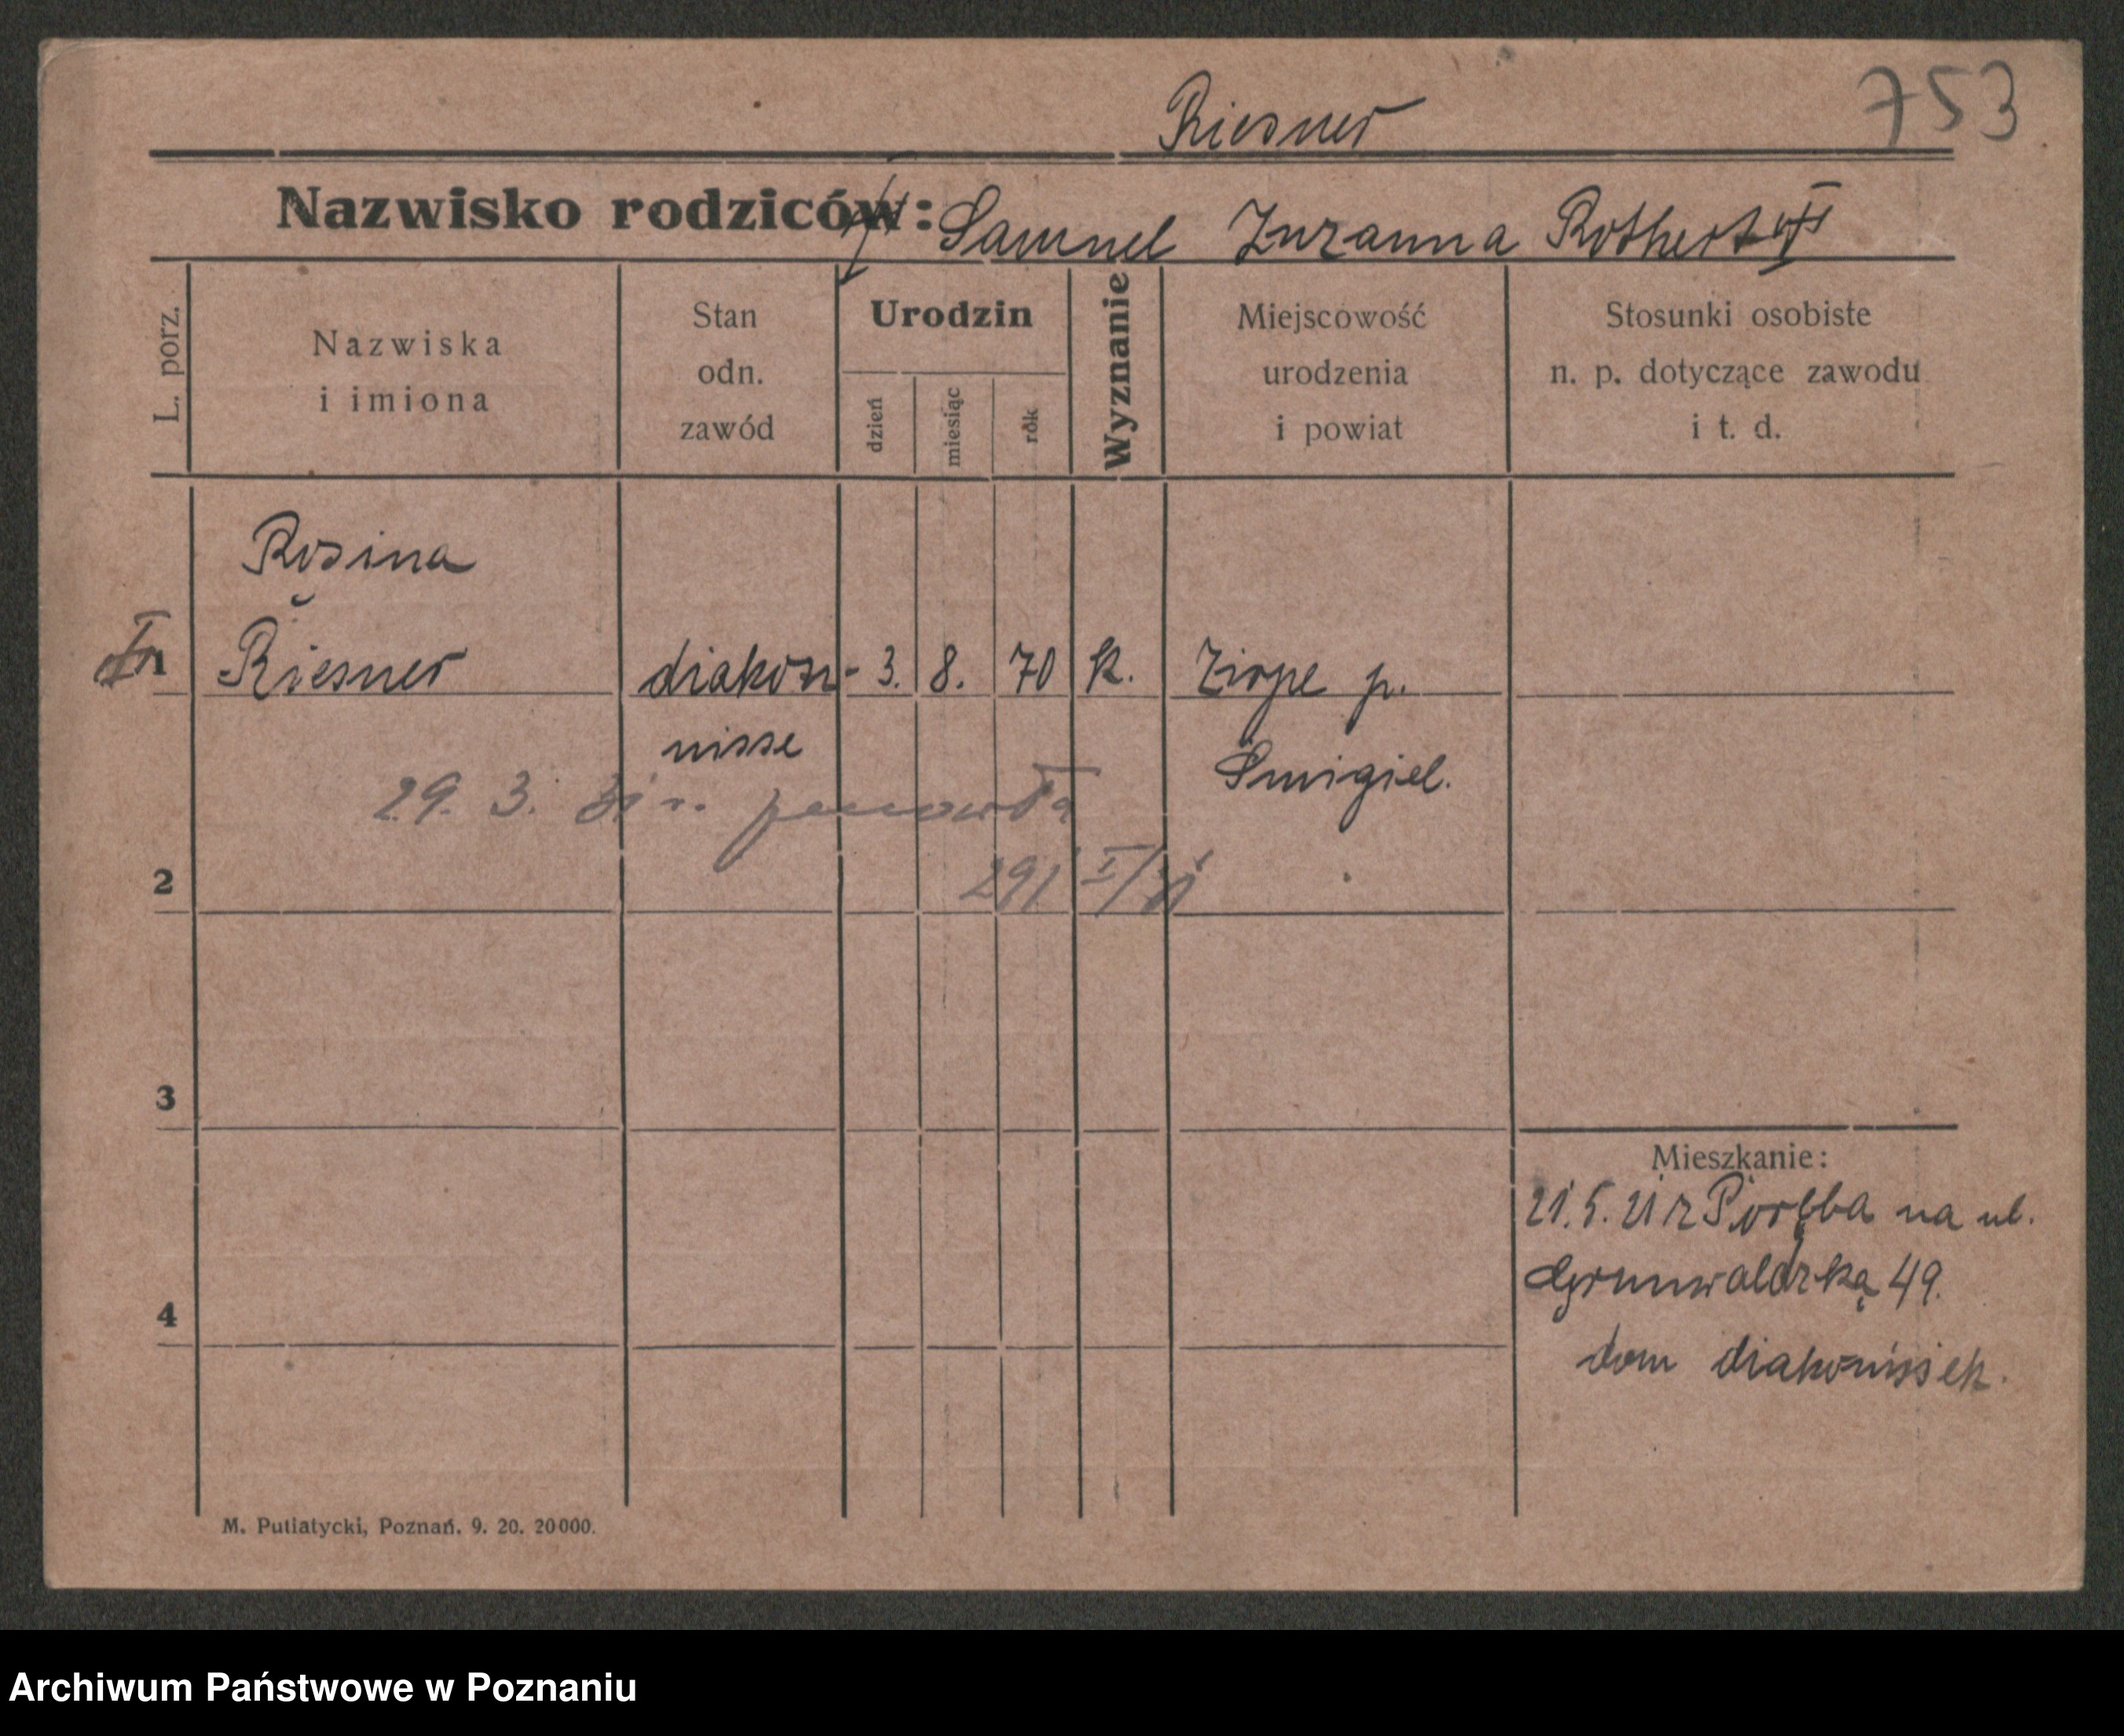 753
Riesner
Nazwisko rodziców: Samuel Zuzanna Rothert
L. porz.
Nazwiska
i imiona
Stan
odn.
zawód
Urodzin
dzień
miesiąc
rok
Wyznanie
Miejscowość
urodzenia
i powiat
Stosunki osobiste
n. p. dotyczące zawodu
i t. d.
Rosina
1 Riesner diakon- 3. 8. 70 k. Zirpe p.
nisse Śmigiel.
29. 3. 31 r.
2
3
4
Mieszkanie:
21. 5. 21 z Poręba na ul.
Grunwaldzką 49.
dom diakonissek.
M. Putiatycki, Poznań. 9. 20. 20000.
Archiwum Państwowe w Poznaniu